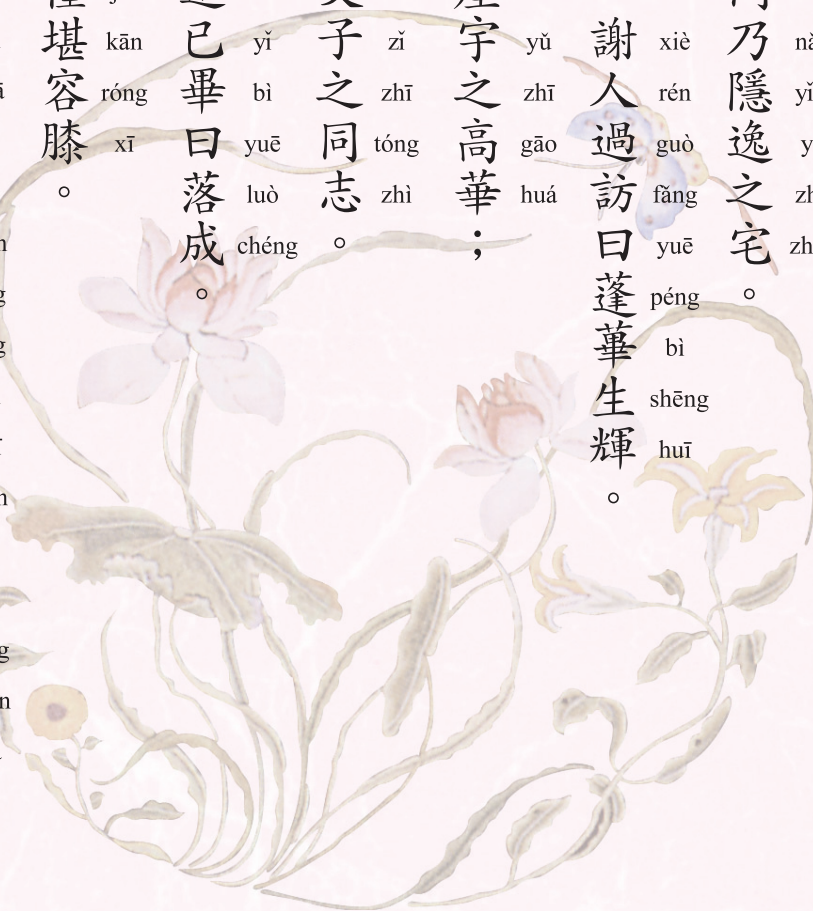 乃隱逸之宅。
謝人過訪曰蓬蓽生輝。
xiè rén guò fǎng yuē péng bì shēng huī
宇之高華；
yǔ zhī gāo huá
子之同志。
zǐ zhī tóng zhì
已畢曰落成。
yǐ bì yuē luò chéng
堪容膝。
kān róng xī